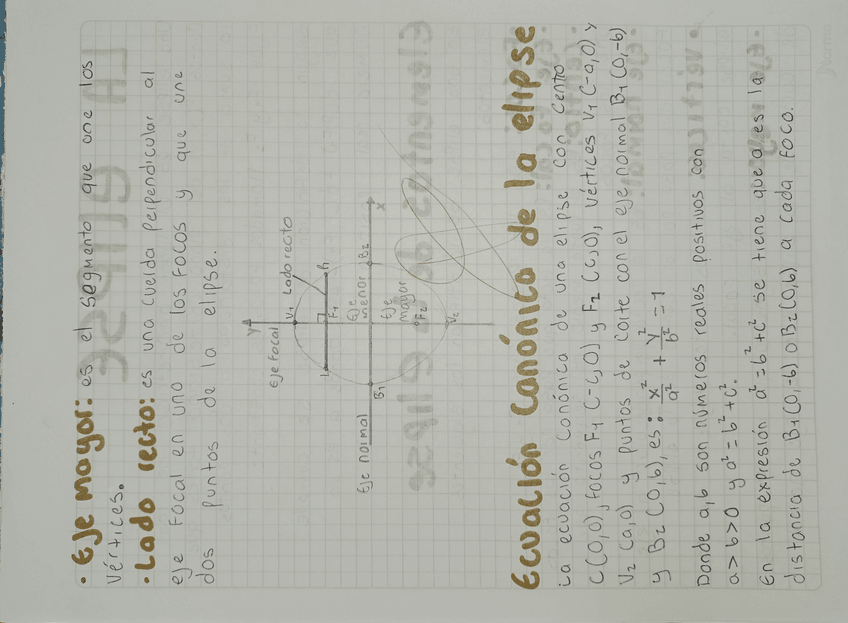 • Eje mayor: es el segmento que une los
vértices.
• Lado recto: es una cuerda perpendicular al
eje focal en uno de los focos y que une
dos puntos de la elipse.
y
Eje focal
V₁ Lado recto
L F₁ R
Eje normal
B₁
Eje menor
B₂
x
Eje mayor
F₂
V₂
Ecuación Canónica de la elipse
La ecuación canónica de una elipse con centro
C(0,0), focos F₁ (-c,0) y F₂ (c,0), vértices V₁ (-a,0) y
V₂ (a,0) y puntos de corte con el eje normal B₁ (0,-b)
y B₂ (0,b), es: x²/a² + y²/b² = 1
Donde a,b son números reales positivos con
a > b > 0 y a² = b² + c².
En la expresión a² = b² + c² se tiene que a es la
distancia de B₁ (0,-b) o B₂ (0,b) a cada foco.